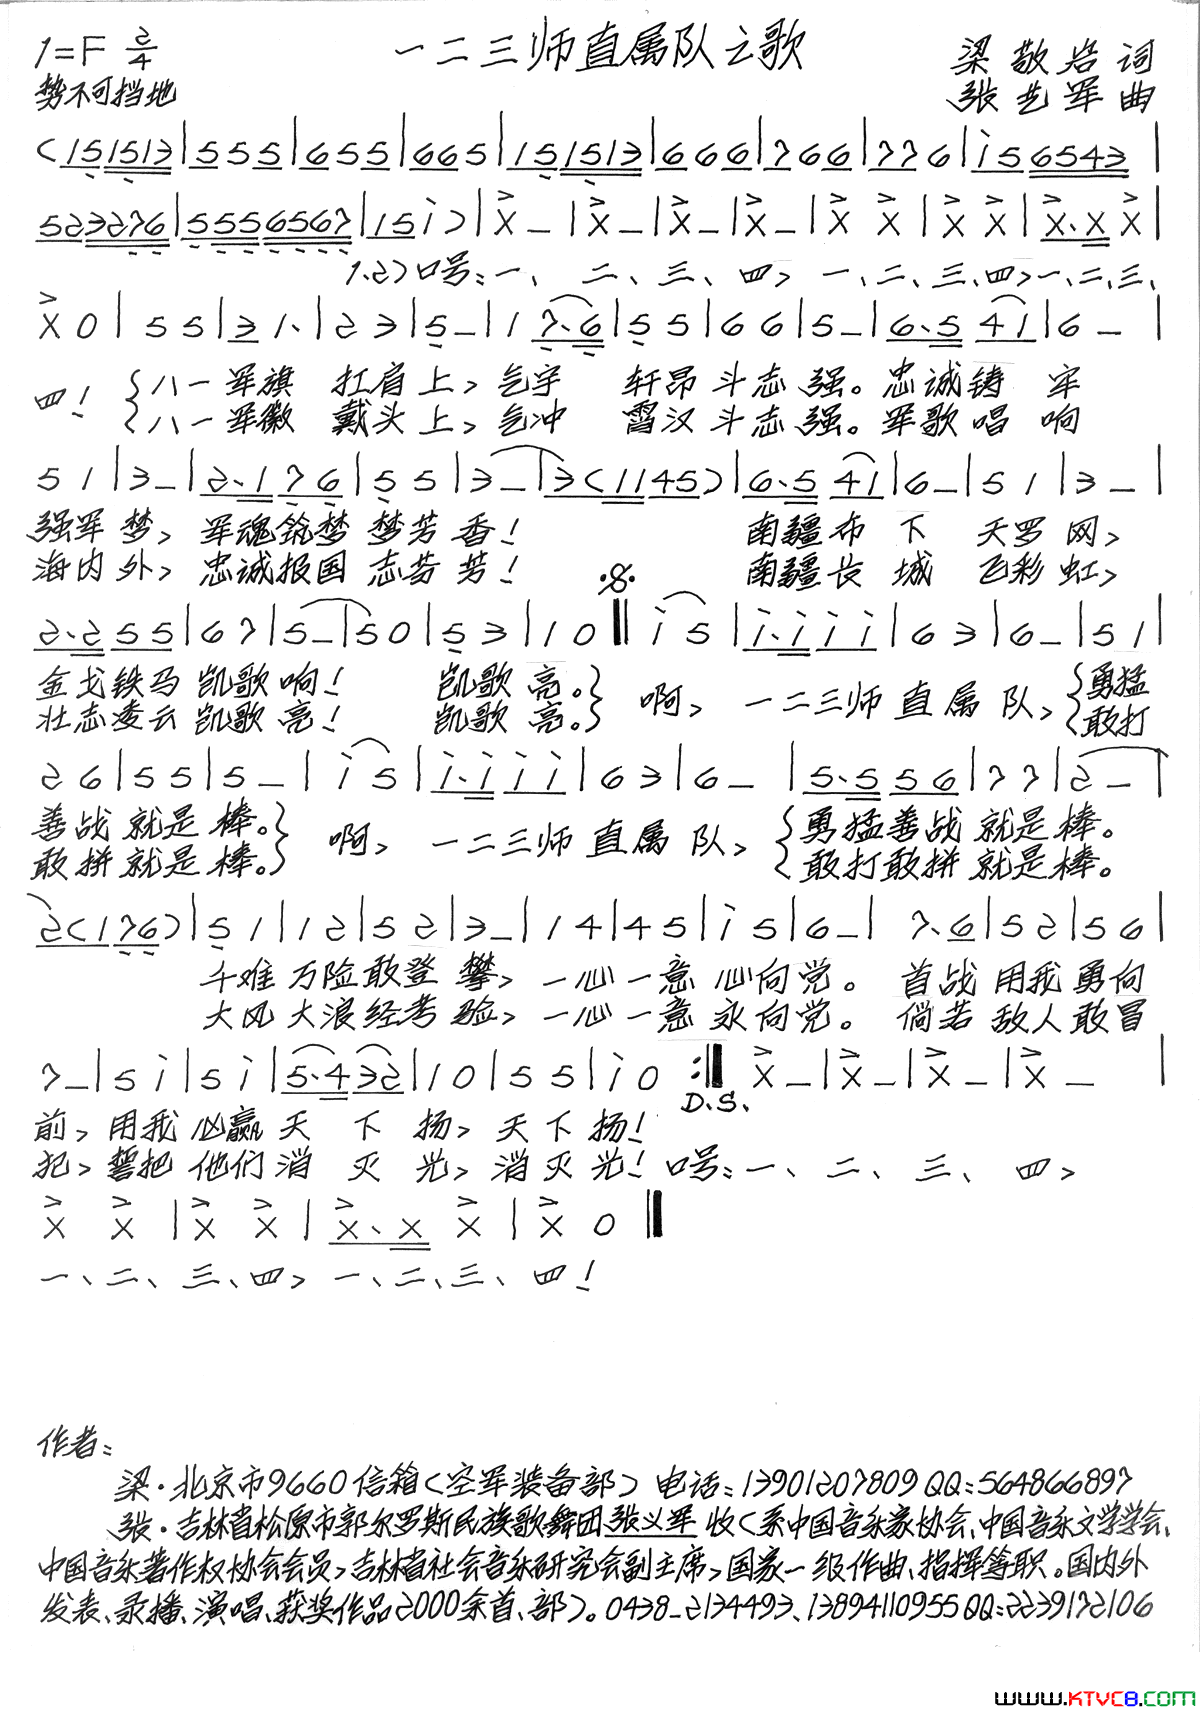 1=F 2/4 一二三师直属队之歌 梁敬岩 词
势不可挡地 张艺军 曲
(1 5 1 5 1 3 | 5 5 5 | 6 5 5 | 6 6 5 | 1 5 1 5 1 3 | 6 6 6 | 7 6 6 | 7 7 6 | i 5 6 5 4 3 |
5 2 3 2 7 6 | 5 5 5 6 5 6 7 | 1 5 i ) | X – | X – | X – | X – | X X | X X | X. X X |
1.2) 口号:一、 二、 三、 四, 一、二、三、四,一、二、三、
X 0 | 5 5 | 3 1. | 2 3 | 5 – | 1 7. 6 | 5 5 | 6 6 | 5 – | 6. 5 4 1 | 6 – |
四! { 八一军旗 扛肩上, 气宇 轩昂斗志强。忠诚铸 牢
八一军徽 戴头上, 气冲 霄汉斗志强。军歌唱 响
5 1 | 3 – | 2. 1 7 6 | 5 5 | 3 – | 3 ( 1 1 4 5 ) | 6. 5 4 1 | 6 – | 5 1 | 3 – |
强军梦, 军魂筑梦 梦芳香! 南疆布 下 天罗网,
海内外, 忠诚报国 志芬芳! 南疆长 城 飞彩虹,
2. 2 5 5 | 6 7 | 5 – | 5 0 | 5 3 | 1 0 ‖ i 5 | i. i i i | 6 3 | 6 – | 5 1 |
金戈铁马 凯歌响! 凯歌亮。} 啊, 一二三师直属队, { 勇猛
壮志凌云 凯歌亮! 凯歌亮。 敢打
2 6 | 5 5 | 5 – | i 5 | i. i i i | 6 3 | 6 – | 5. 5 5 6 | 7 7 | 2 – |
善战就是棒。} 啊, 一二三师直属队, { 勇猛善战就是棒。
敢拼就是棒。 敢打敢拼就是棒。
2 ( 1 7 6 ) | 5 1 | 1 2 | 5 2 | 3 – | 1 4 | 4 5 | i 5 | 6 – | 7. 6 | 5 2 | 5 6 |
千难万险敢登攀, 一心一意心向党。 首战用我勇向
大风大浪经考验, 一心一意永向党。 倘若敌人敢冒
7 – | 5 i | 5 i | 5. 4 3 2 | 1 0 | 5 5 | i 0 :‖ X – | X – | X – | X – |
D.S.
前, 用我必赢天下扬, 天下扬!
犯, 誓把他们消灭光, 消灭光! 口号:一、 二、 三、 四,
X X | X X | X. X X | X 0 ‖
一、二、三、四, 一、二、三、四!
作者:
梁·北京市9660信箱(空军装备部) 电话:13901207809 QQ:564866897
张·吉林省松原市郭尔罗斯民族歌舞团张义军 收(系中国音乐家协会、中国音乐文学学会、
中国音乐著作权协会会员,吉林省社会音乐研究会副主席,国家一级作曲、指挥等职。国内外
发表、录播、演唱、获奖作品2000余首、部)。0438–2134493、13894110955 QQ:2239172106
www.KTVC8.com